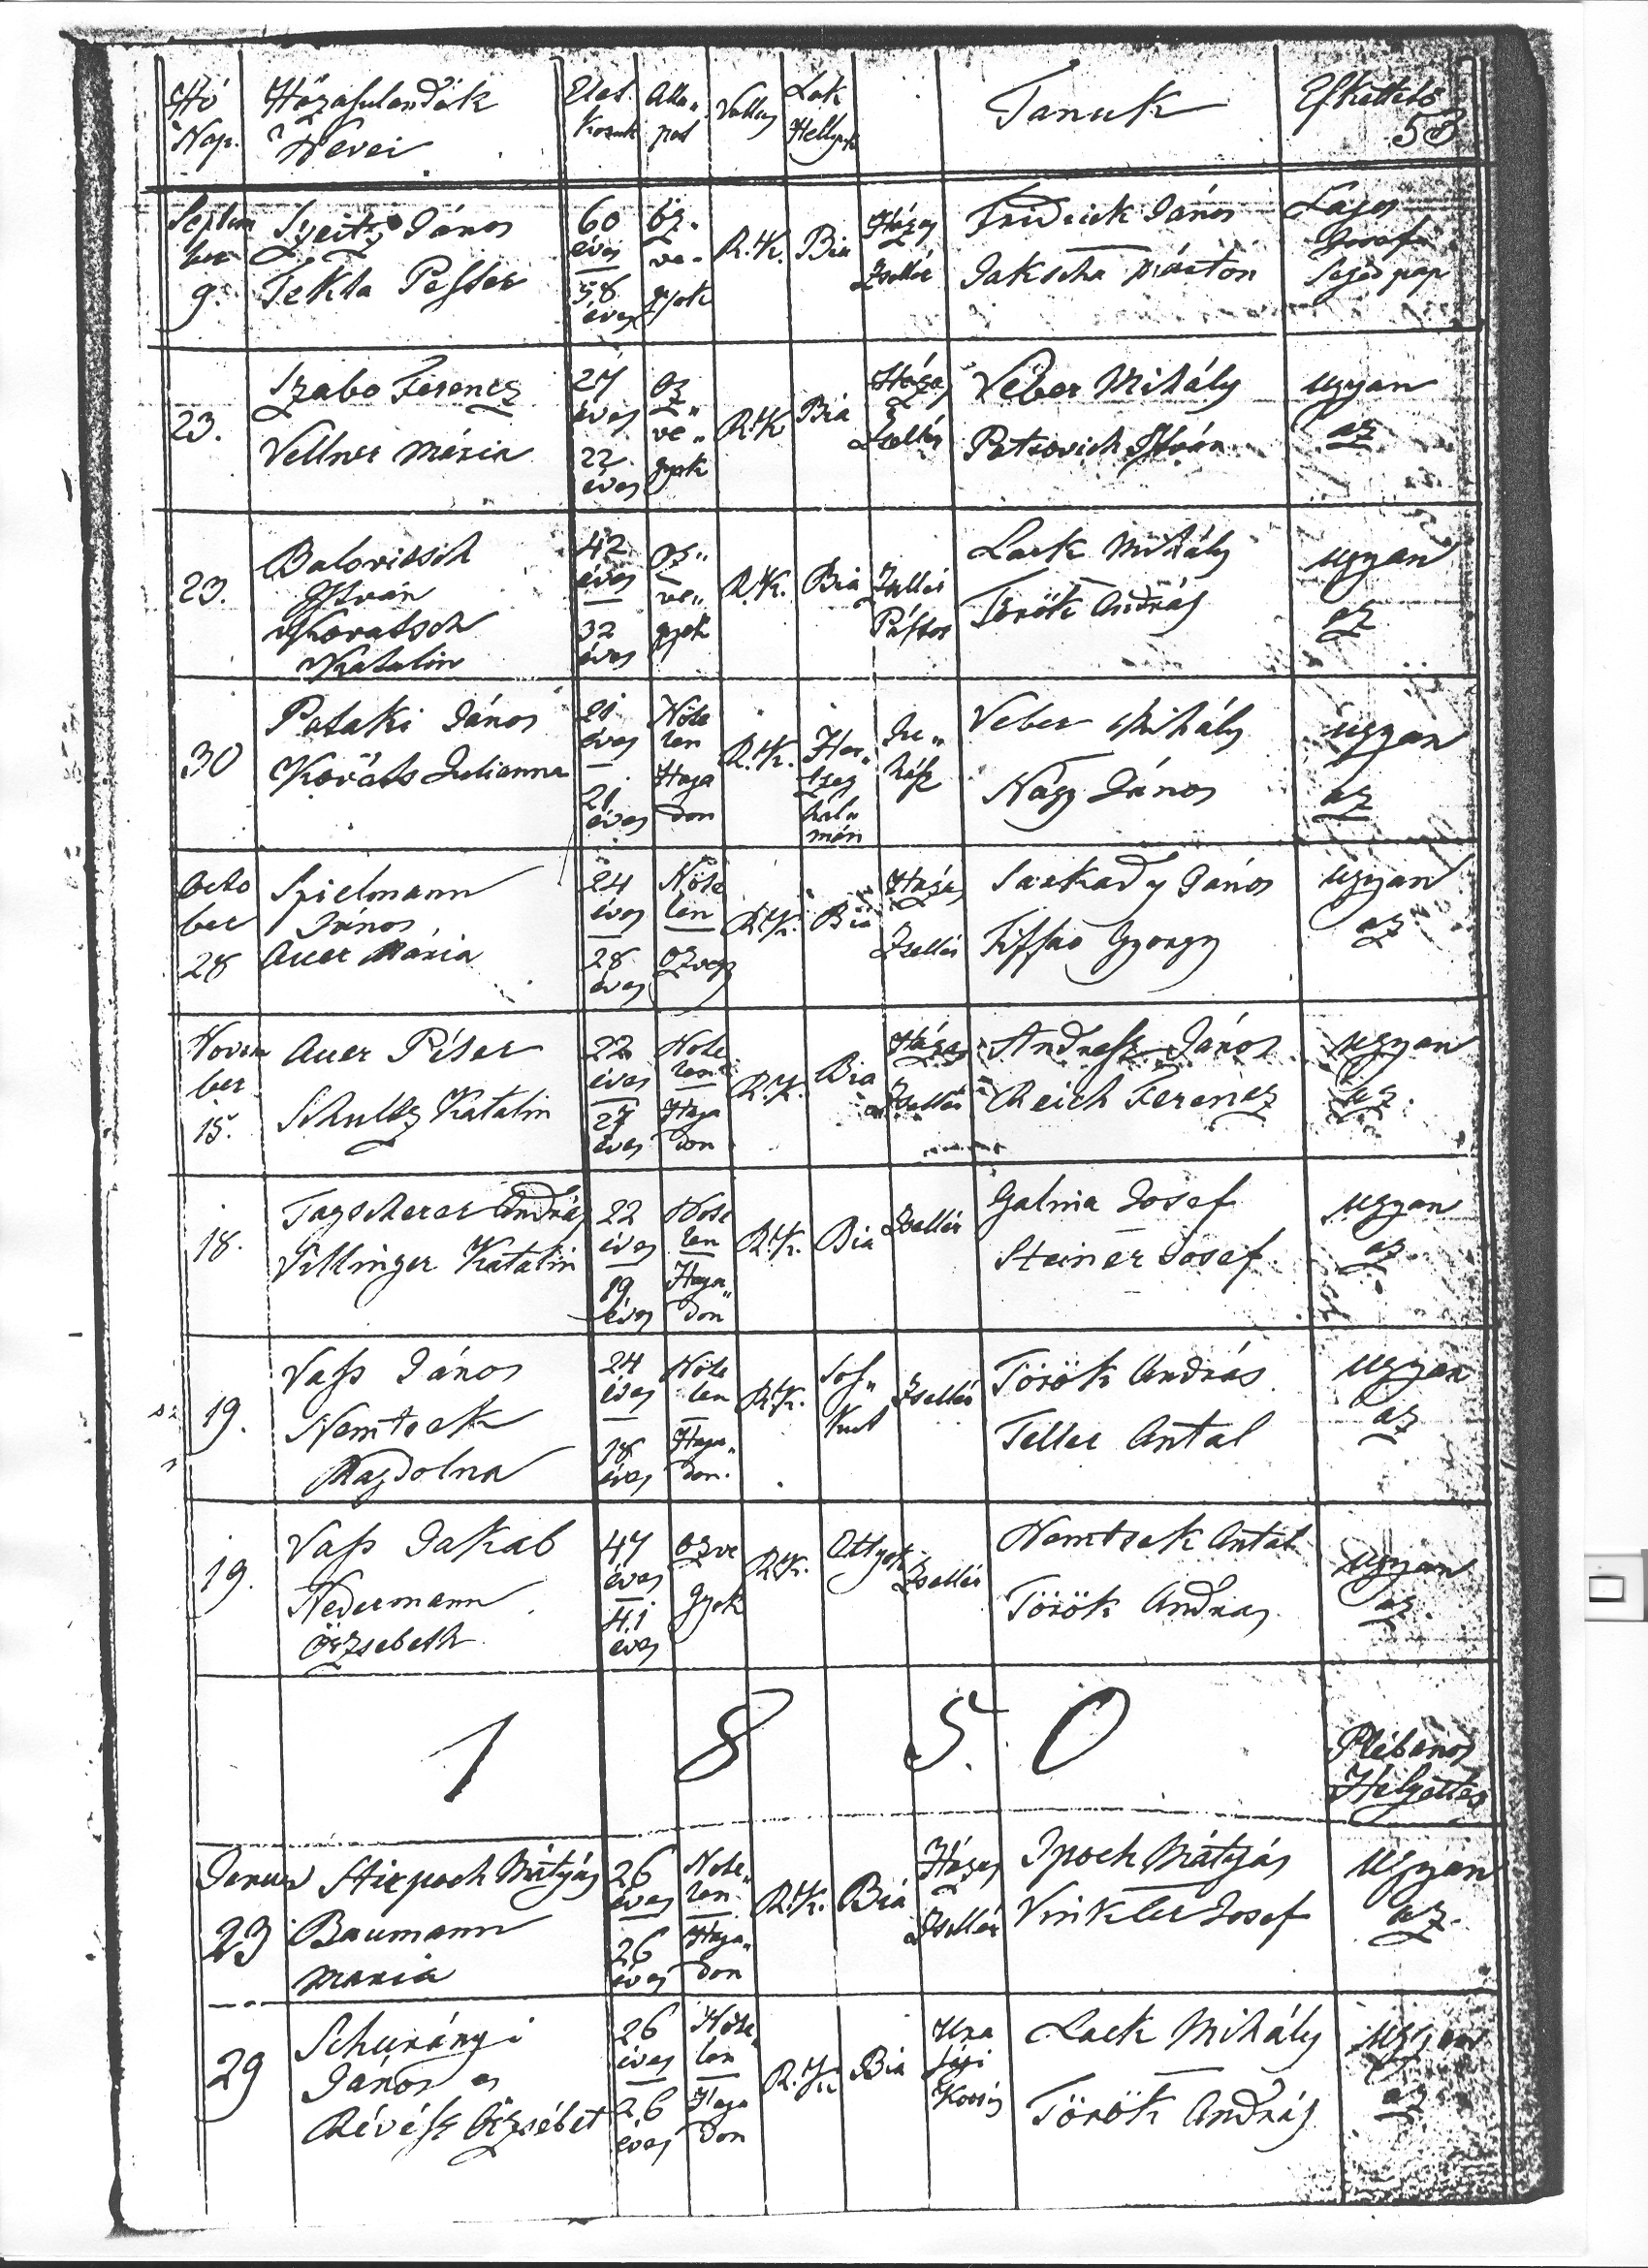 Hó
Nap.
Házasulandók
Nevei
Élet
korok
Álla„
pot
Vallás
Lak
Hellyek
Tanuk
Eskettető
53
Septem
ber
9.
János
Tekla Pesser
60
éves
58
éves
Öz„
ve„
gyek
R.K.
Bia
Házas
Zsellér
Fridrick János
Jakscha Márton
Lajos
Josef
Segéd pap
23.
Szabo Ferencz
Vellner Mária
27
éves
22
éves
Öz
ve„
gyek
R.K
Bia
Házas
Zsellér
Véber Mihály
Petrovich István
ugyan
az
23.
Balovitsch
István
Horvatsch
Katalin
42
éves
32
éves
Öz„
ve„
gyek
R.K.
Bia
Zsellér
Pásztor
Lack Mihály
Török András
ugyan
az
30
Pataki János
Kováts Julianna
21
éves
21
éves
Nőte
len
Haja
don
R.K.
Her„
tzeg
hal„
mán
Ju„
hász
Veber Mihály
Nagy János
ugyan
az
Octo
ber
28
Spielmann
János
Auer Mária
24
éves
28
éves
Nőte
len
Özvegy
R.K.
Bia
Házas
Zsellér
Sarkady János
György
ugyan
az
Novem
ber
15.
Auer Péter
Schultz Katalin
22
éves
27
éves
Nőte
len
Haja
don
R.K.
Bia
Házas
Zsellér
Andresz János
Reich Ferencz
ugyan
az.
18.
Tagscherer András
Villinger Katalin
22
éves
19
éves
Nőte
len
Haja„
don
R.K.
Bia
Zsellér
Galina Josef
Steiner Josef
ugyan
az.
19.
Vass János
Nemtsek
Magdolna
24
éves
18
éves
Nőte
len
Haja„
don.
R.K.
Sós„
kut
Zsellér
Török András
Teller Antal
ugyan
az
19.
Vass Jakab
Nedermann
Örzsebeth
47
éves
41
éves
Özve
gyek
R.K.
Ettyek
Zsellér
Nemtsek Antal
Török András
ugyan
az.
1 8 5. 0
Plébános
Helyettes
Januar
23
Stirpoch Mátyás
Baumann
Maria
26
éves
26
éves
Nőte„
len
Haja„
don
R.K.
Bia
Házas
Zsellér
Ipoch Mátyás
Vinkler Josef
ugyan
az.
29
Schurányi
János es
Révész Örzsébet
26
éves
26
éves
Nőte„
len
Haja
don
R.K.
Bia
Ura
sági
Kocsis
Lack Mihály
Török András
ugyan
az